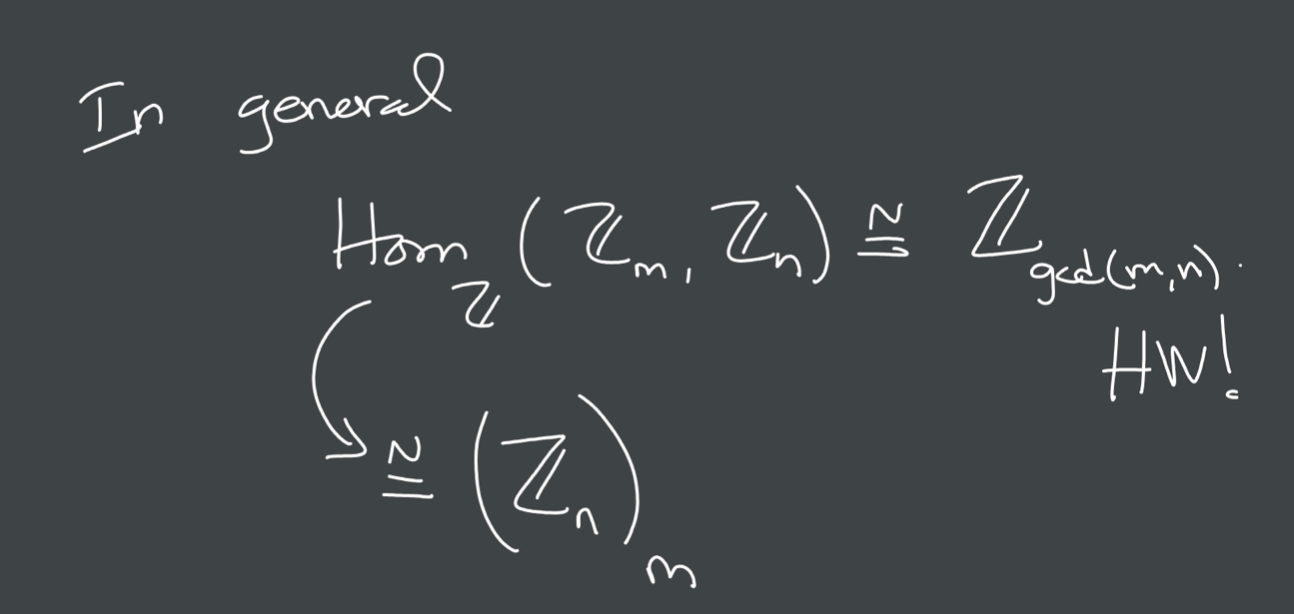 In general
Hom_ℤ (ℤ_m, ℤ_n) ≅ ℤ_gcd(m,n).
HW!
≅ (ℤ_n)_m